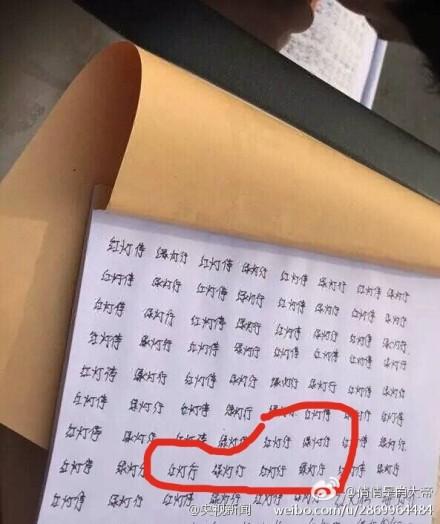 红灯停 绿灯行 红灯停 绿灯行 红灯停 绿灯行 红灯停 绿灯行
红灯停 绿灯行 红灯停 绿灯行 红灯停 绿灯行 红灯停 绿灯行
红灯停 绿灯行 红灯停 绿灯行 红灯停 绿灯行 红灯停 绿灯行
红灯停 绿灯行 红灯停 绿灯行 红灯停 绿灯行 红灯停 绿灯行
红灯停 绿灯行 红灯停 绿灯行 红灯停 绿灯行 红灯停 绿灯行
红灯停 绿灯行 红灯停 绿灯行 红灯停 绿灯行
红灯停 绿灯行 红灯停 绿灯行 红灯行 绿灯行 红灯停 绿灯行
红灯停 绿灯行 红灯行 绿灯行 红灯行 绿灯行 红灯停 绿灯行
红灯停 绿灯行 红灯停 绿灯行 红灯停 绿灯行
@央视新闻
weibo.com/u/2869964484